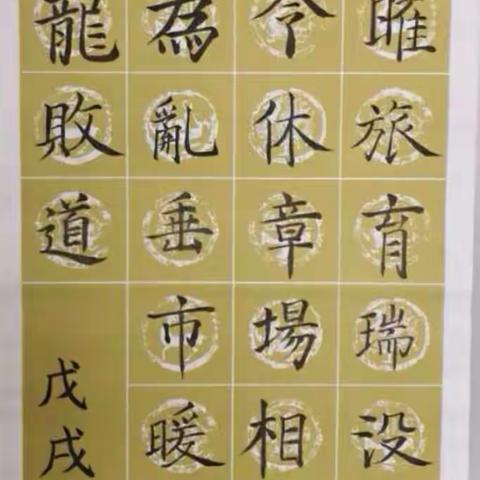 睢旅育瑞没
令休章場相
為亂垂市暖
龍敗道
戊戌